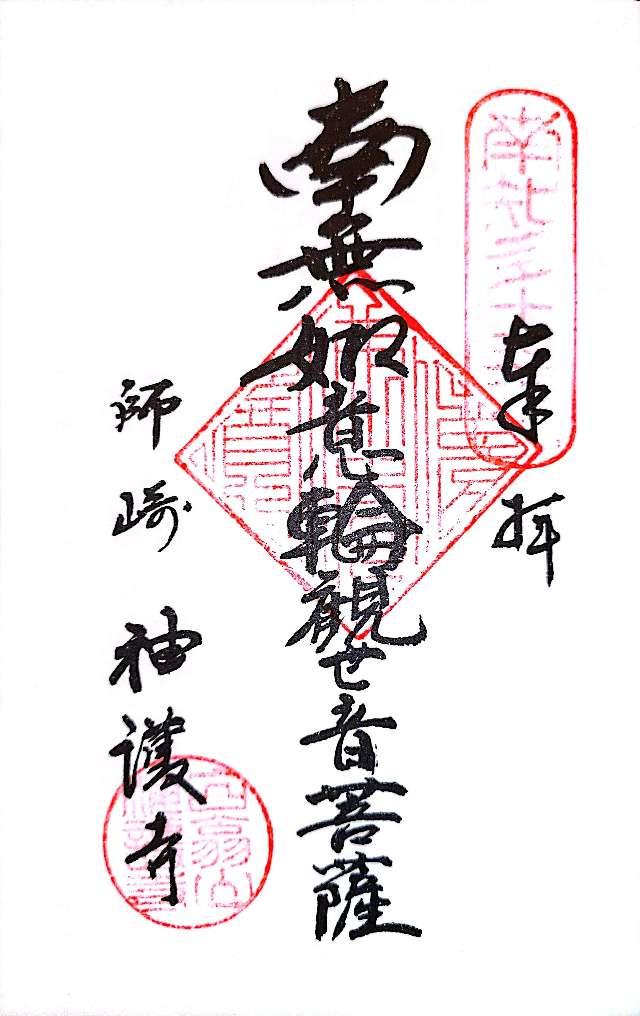 奉拝
南無如意輪觀世音菩薩
師崎 神護寺